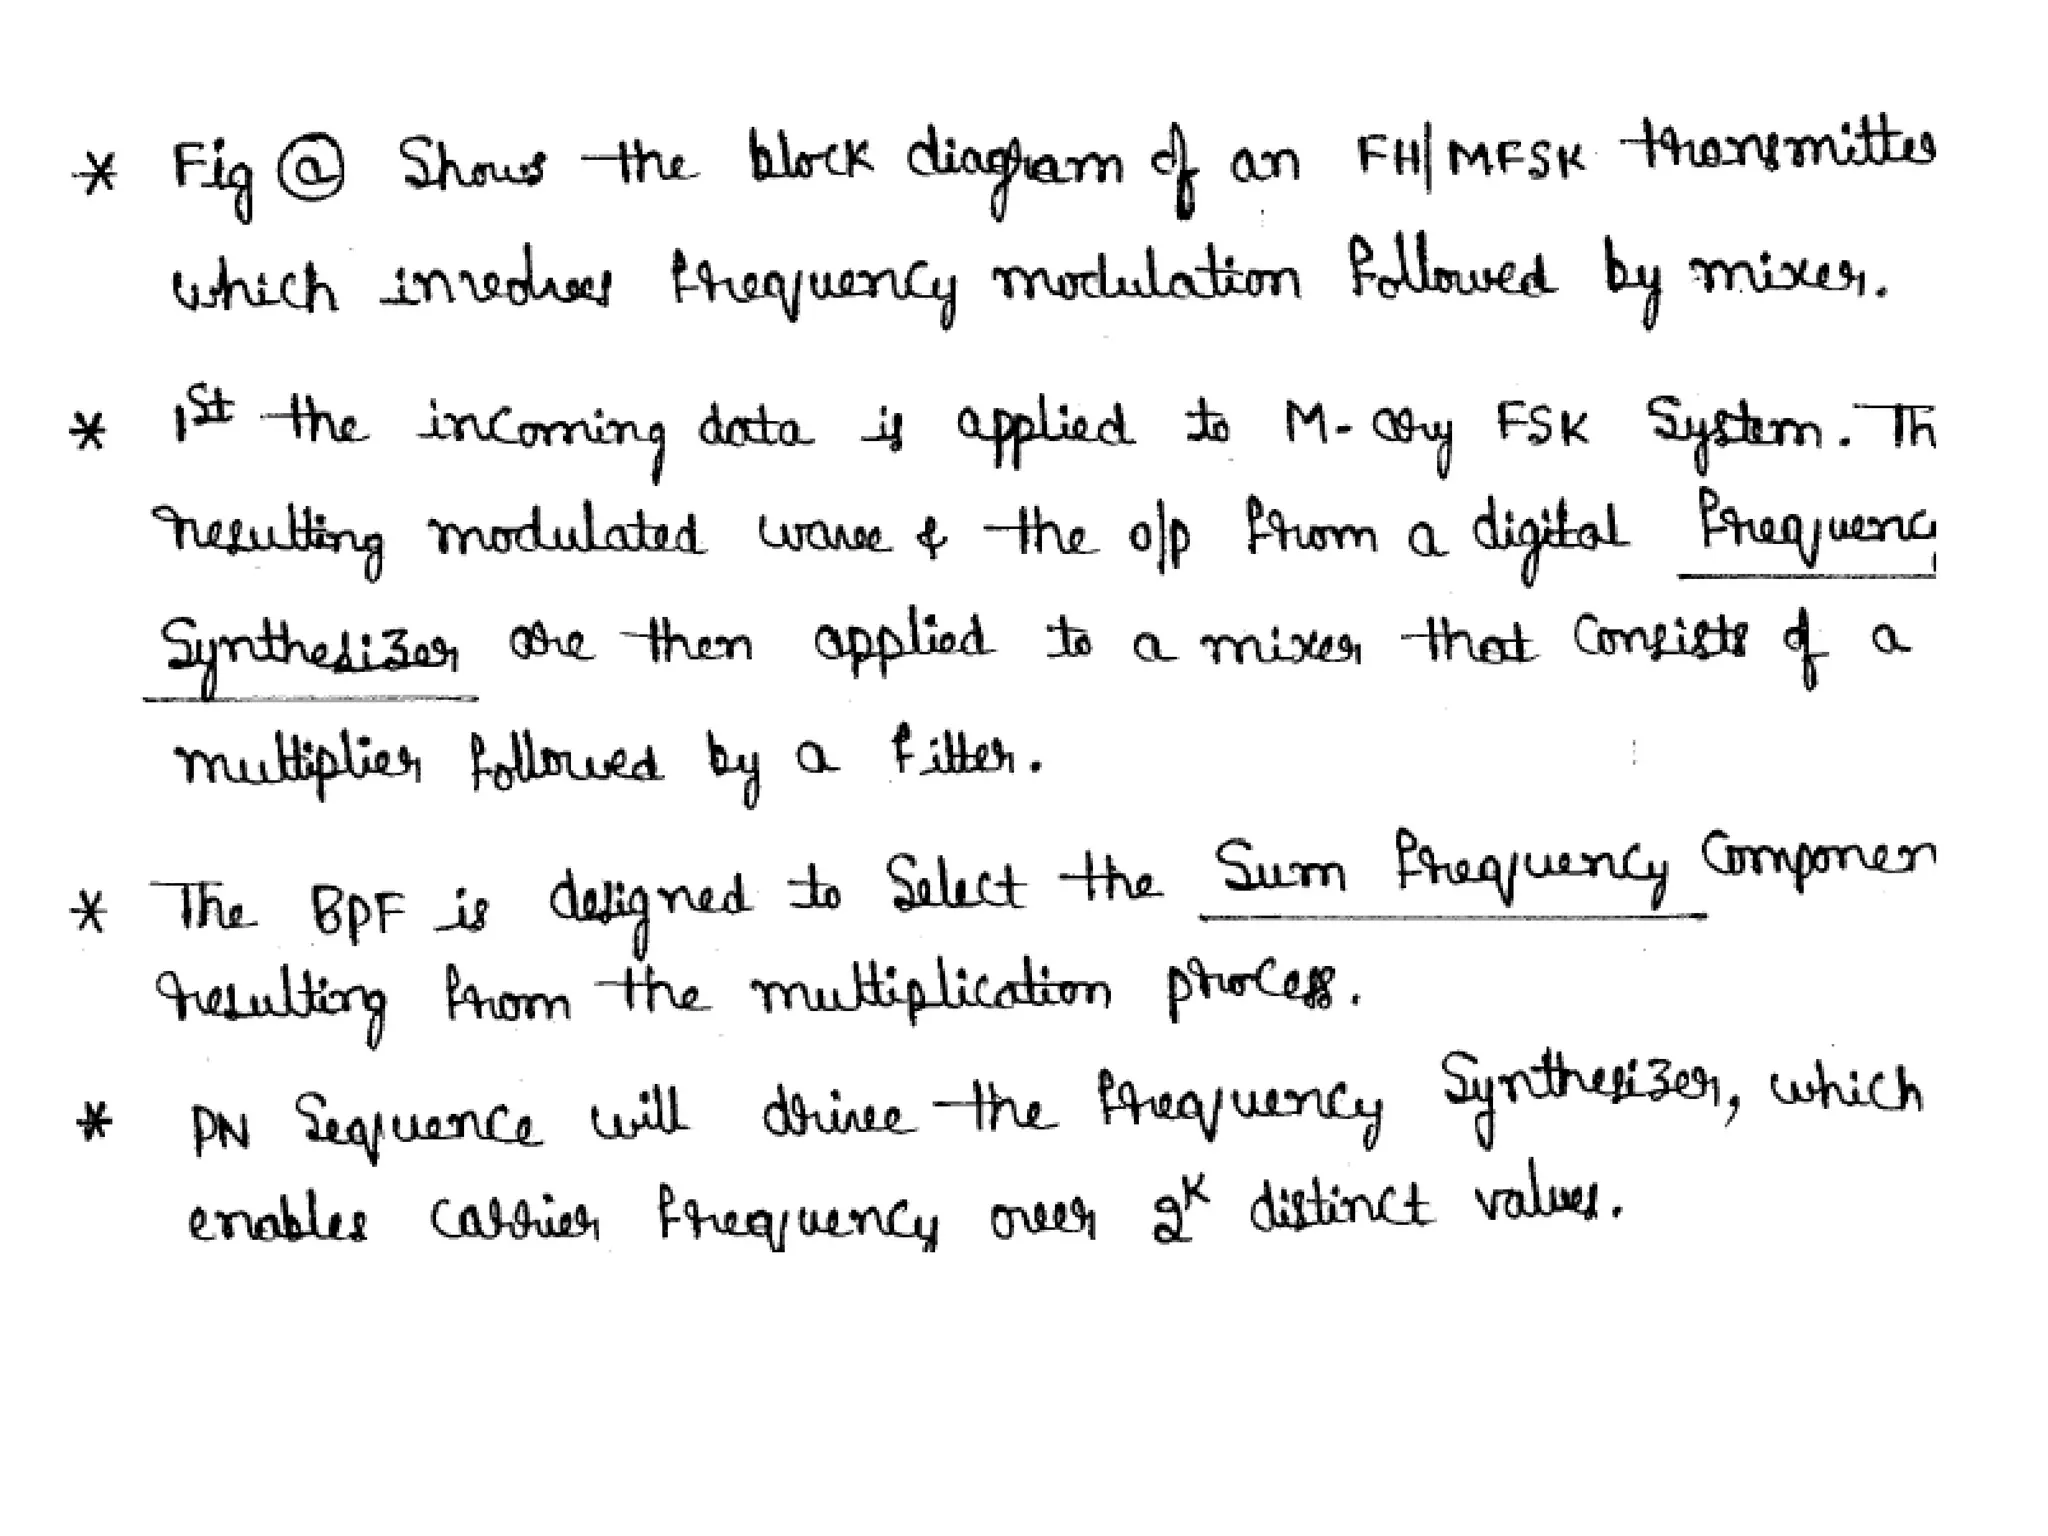 * Fig ⓐ Shows the block diagram of an FH/MFSK transmitter
which involves frequency modulation followed by mixer.
* 1st the incoming data is applied to M-ary FSK System. Th
resulting modulated wave & the o/p from a digital frequenc
Synthesizer are then applied to a mixer that Consists of a
multiplier followed by a filter.
* The BPF is designed to Select the Sum frequency Componen
resulting from the multiplication process.
* PN Sequence will drive the frequency Synthesizer, which
enables Carrier frequency over 2^K distinct values.